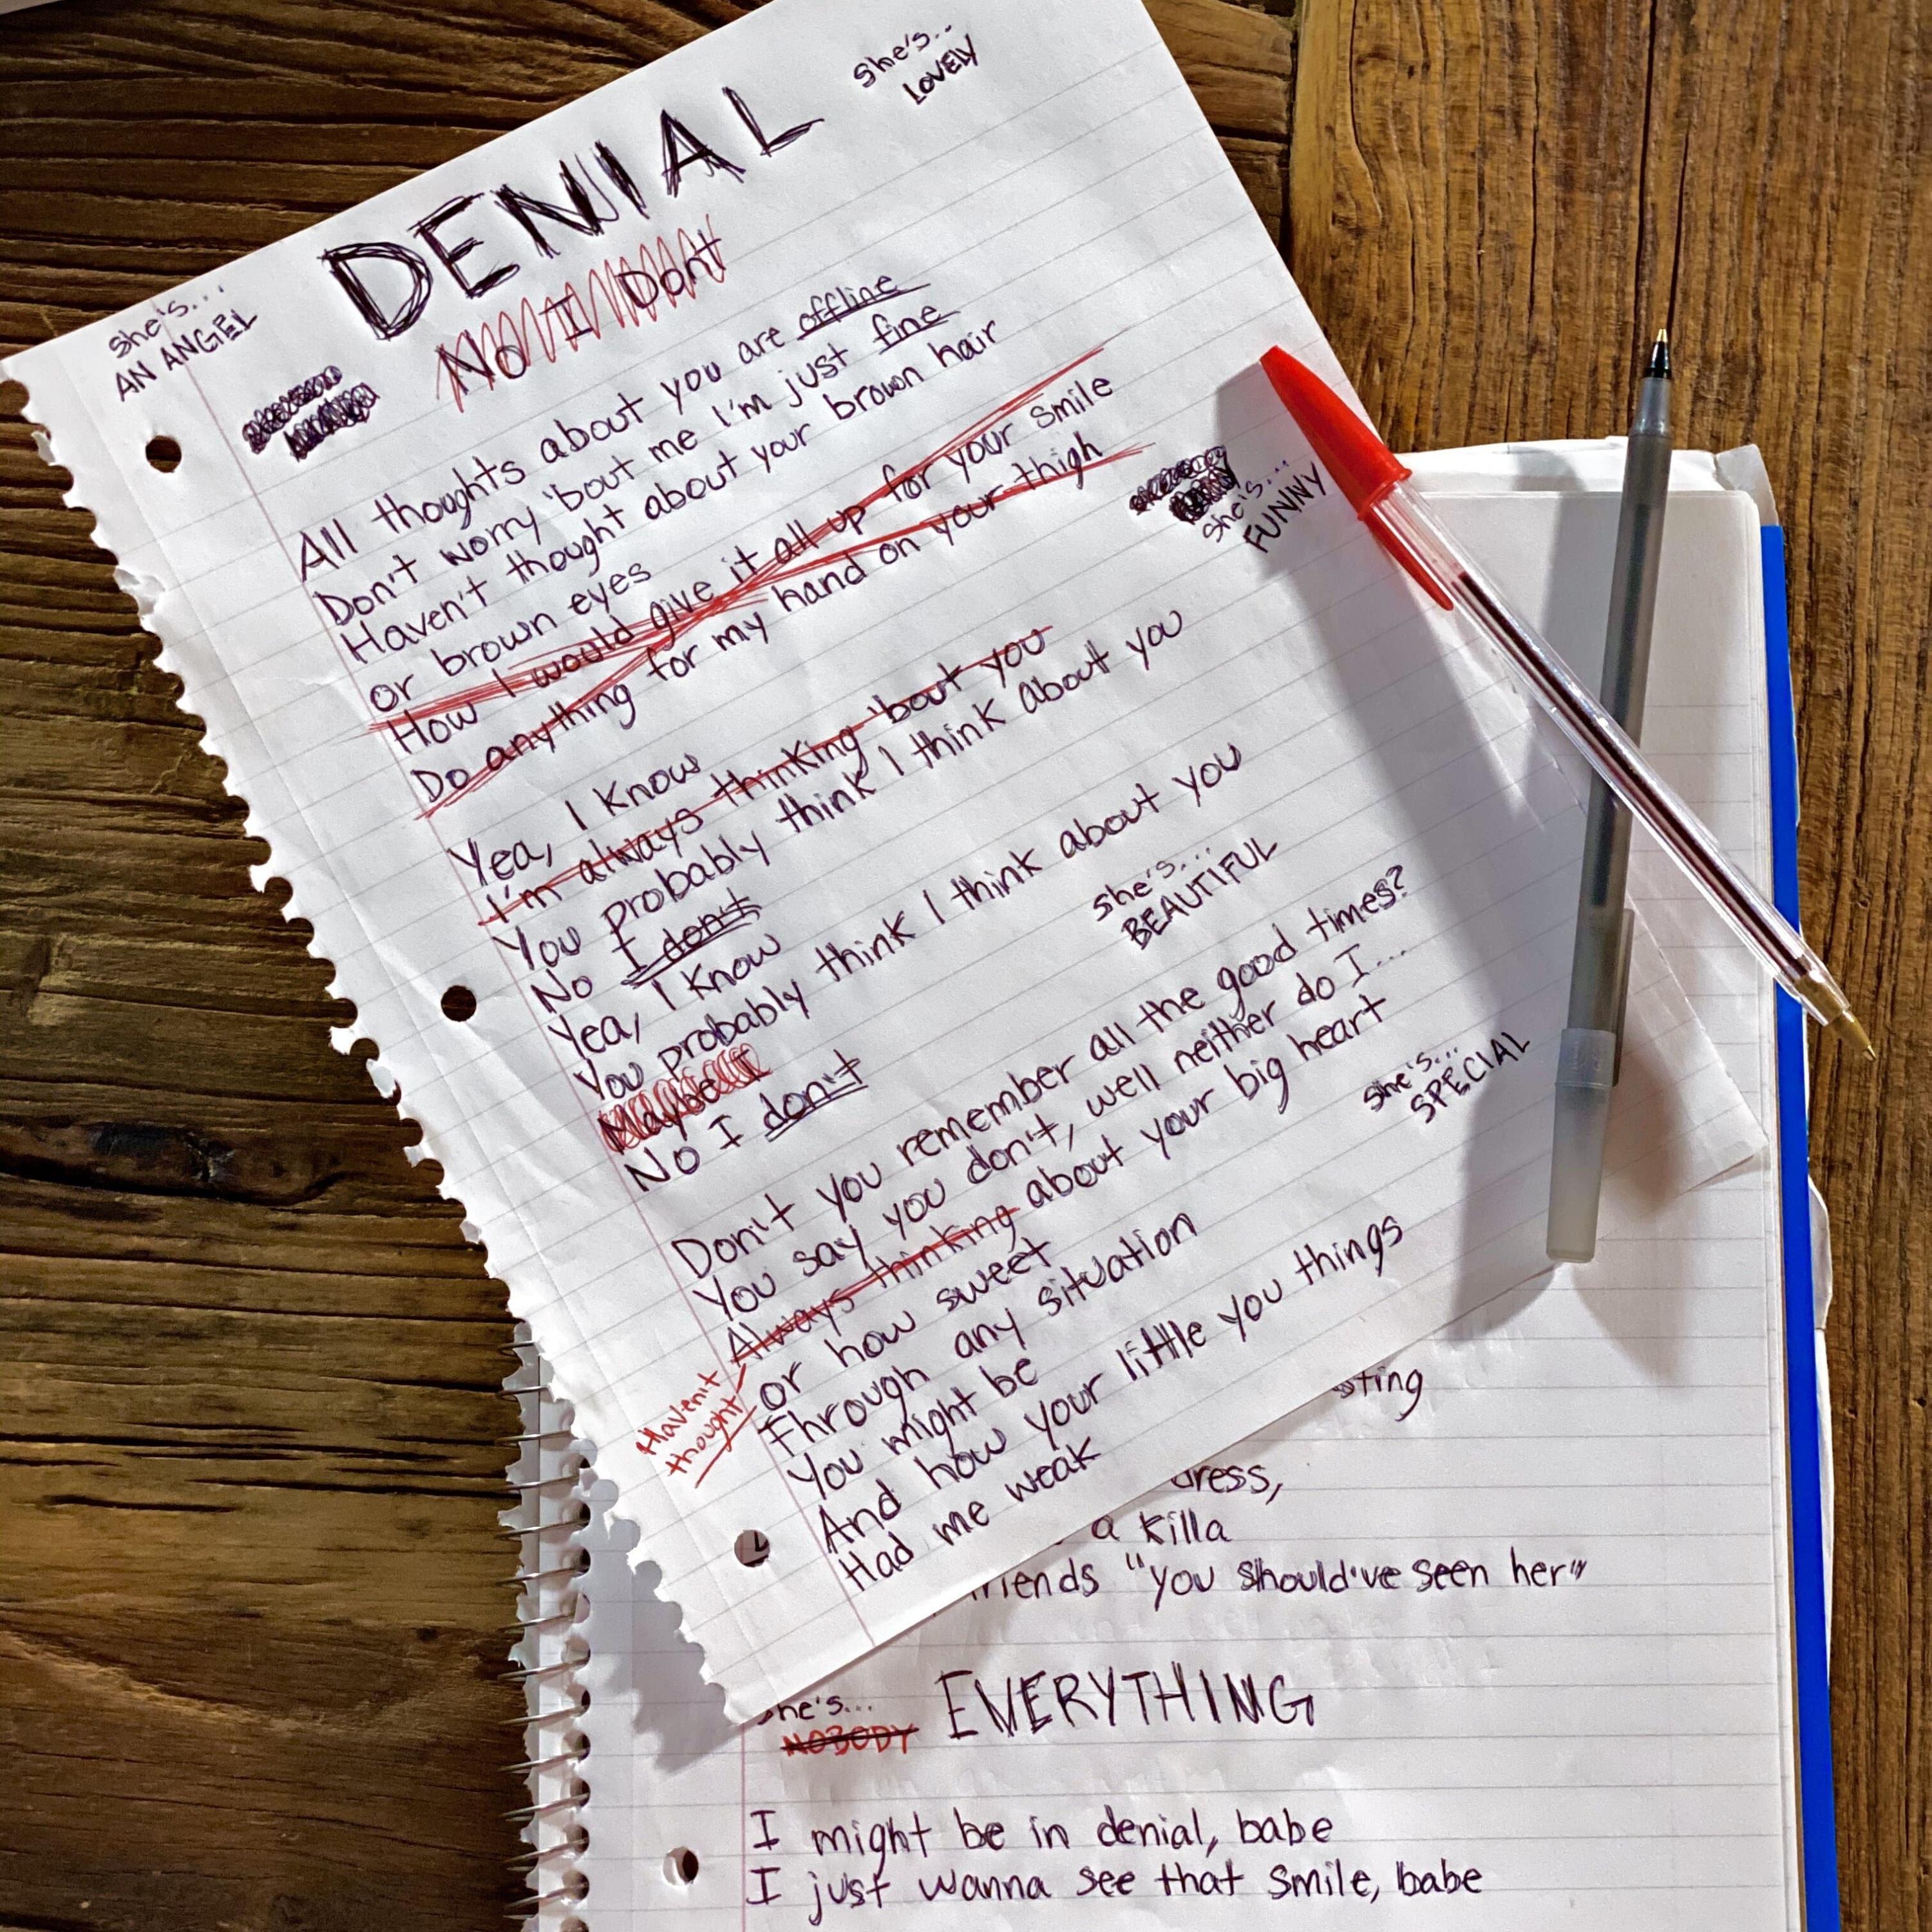 She's...
LOVELY
DENIAL
She's...
AN ANGEL
No I Dont
All thoughts about you are offline
Don't worry 'bout me I'm just fine
Haven't thought about your brown hair
or brown eyes
How I would give it all up for your smile
Do anything for my hand on your thigh
She's...
FUNNY
Yea, I know
I'm always thinking 'bout you
You probably think I think about you
No I don't
Yea, I know
You probably think I think about you
Maybe I
No I don't
She's...
BEAUTIFUL
Don't you remember all the good times?
You say you don't, well neither do I...
Always thinking about your big heart
Haven't
thought
She's...
SPECIAL
or how sweet
Through any situation
You might be
And how your little you things
Had me weak
dress,
a killa
"you should've seen her"
She's...
NOBODY
EVERYTHING
I might be in denial, babe
I just wanna see that smile, babe